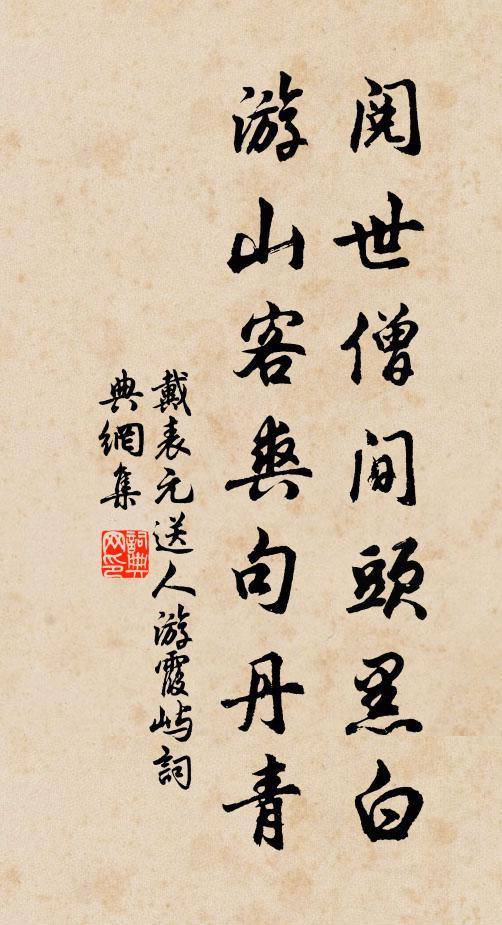 阅世僧间頭黑白
游山客爽句丹青
戴表元送人游霞屿詞
典網集
詞典
网印